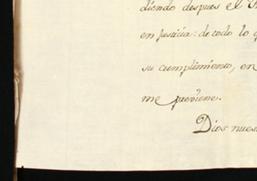 diendo despues el
en justicia: de todo lo
su cumplimiento, en
me previene.
Dios nues